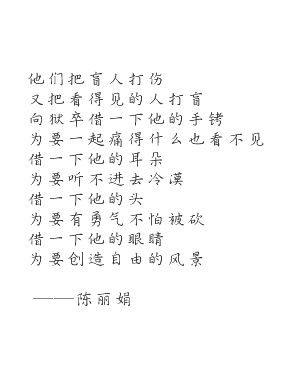 他们把盲人打伤
又把看得见的人打盲
向狱卒借一下他的手铐
为要一起痛得什么也看不见
借一下他的耳朵
为要听不进去冷漠
借一下他的头
为要有勇气不怕被砍
借一下他的眼睛
为要创造自由的风景
———陈丽娟